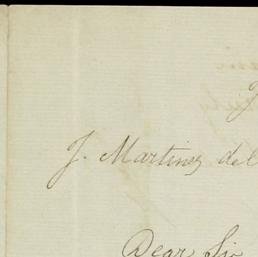 J. Martinez del
Dear Sir